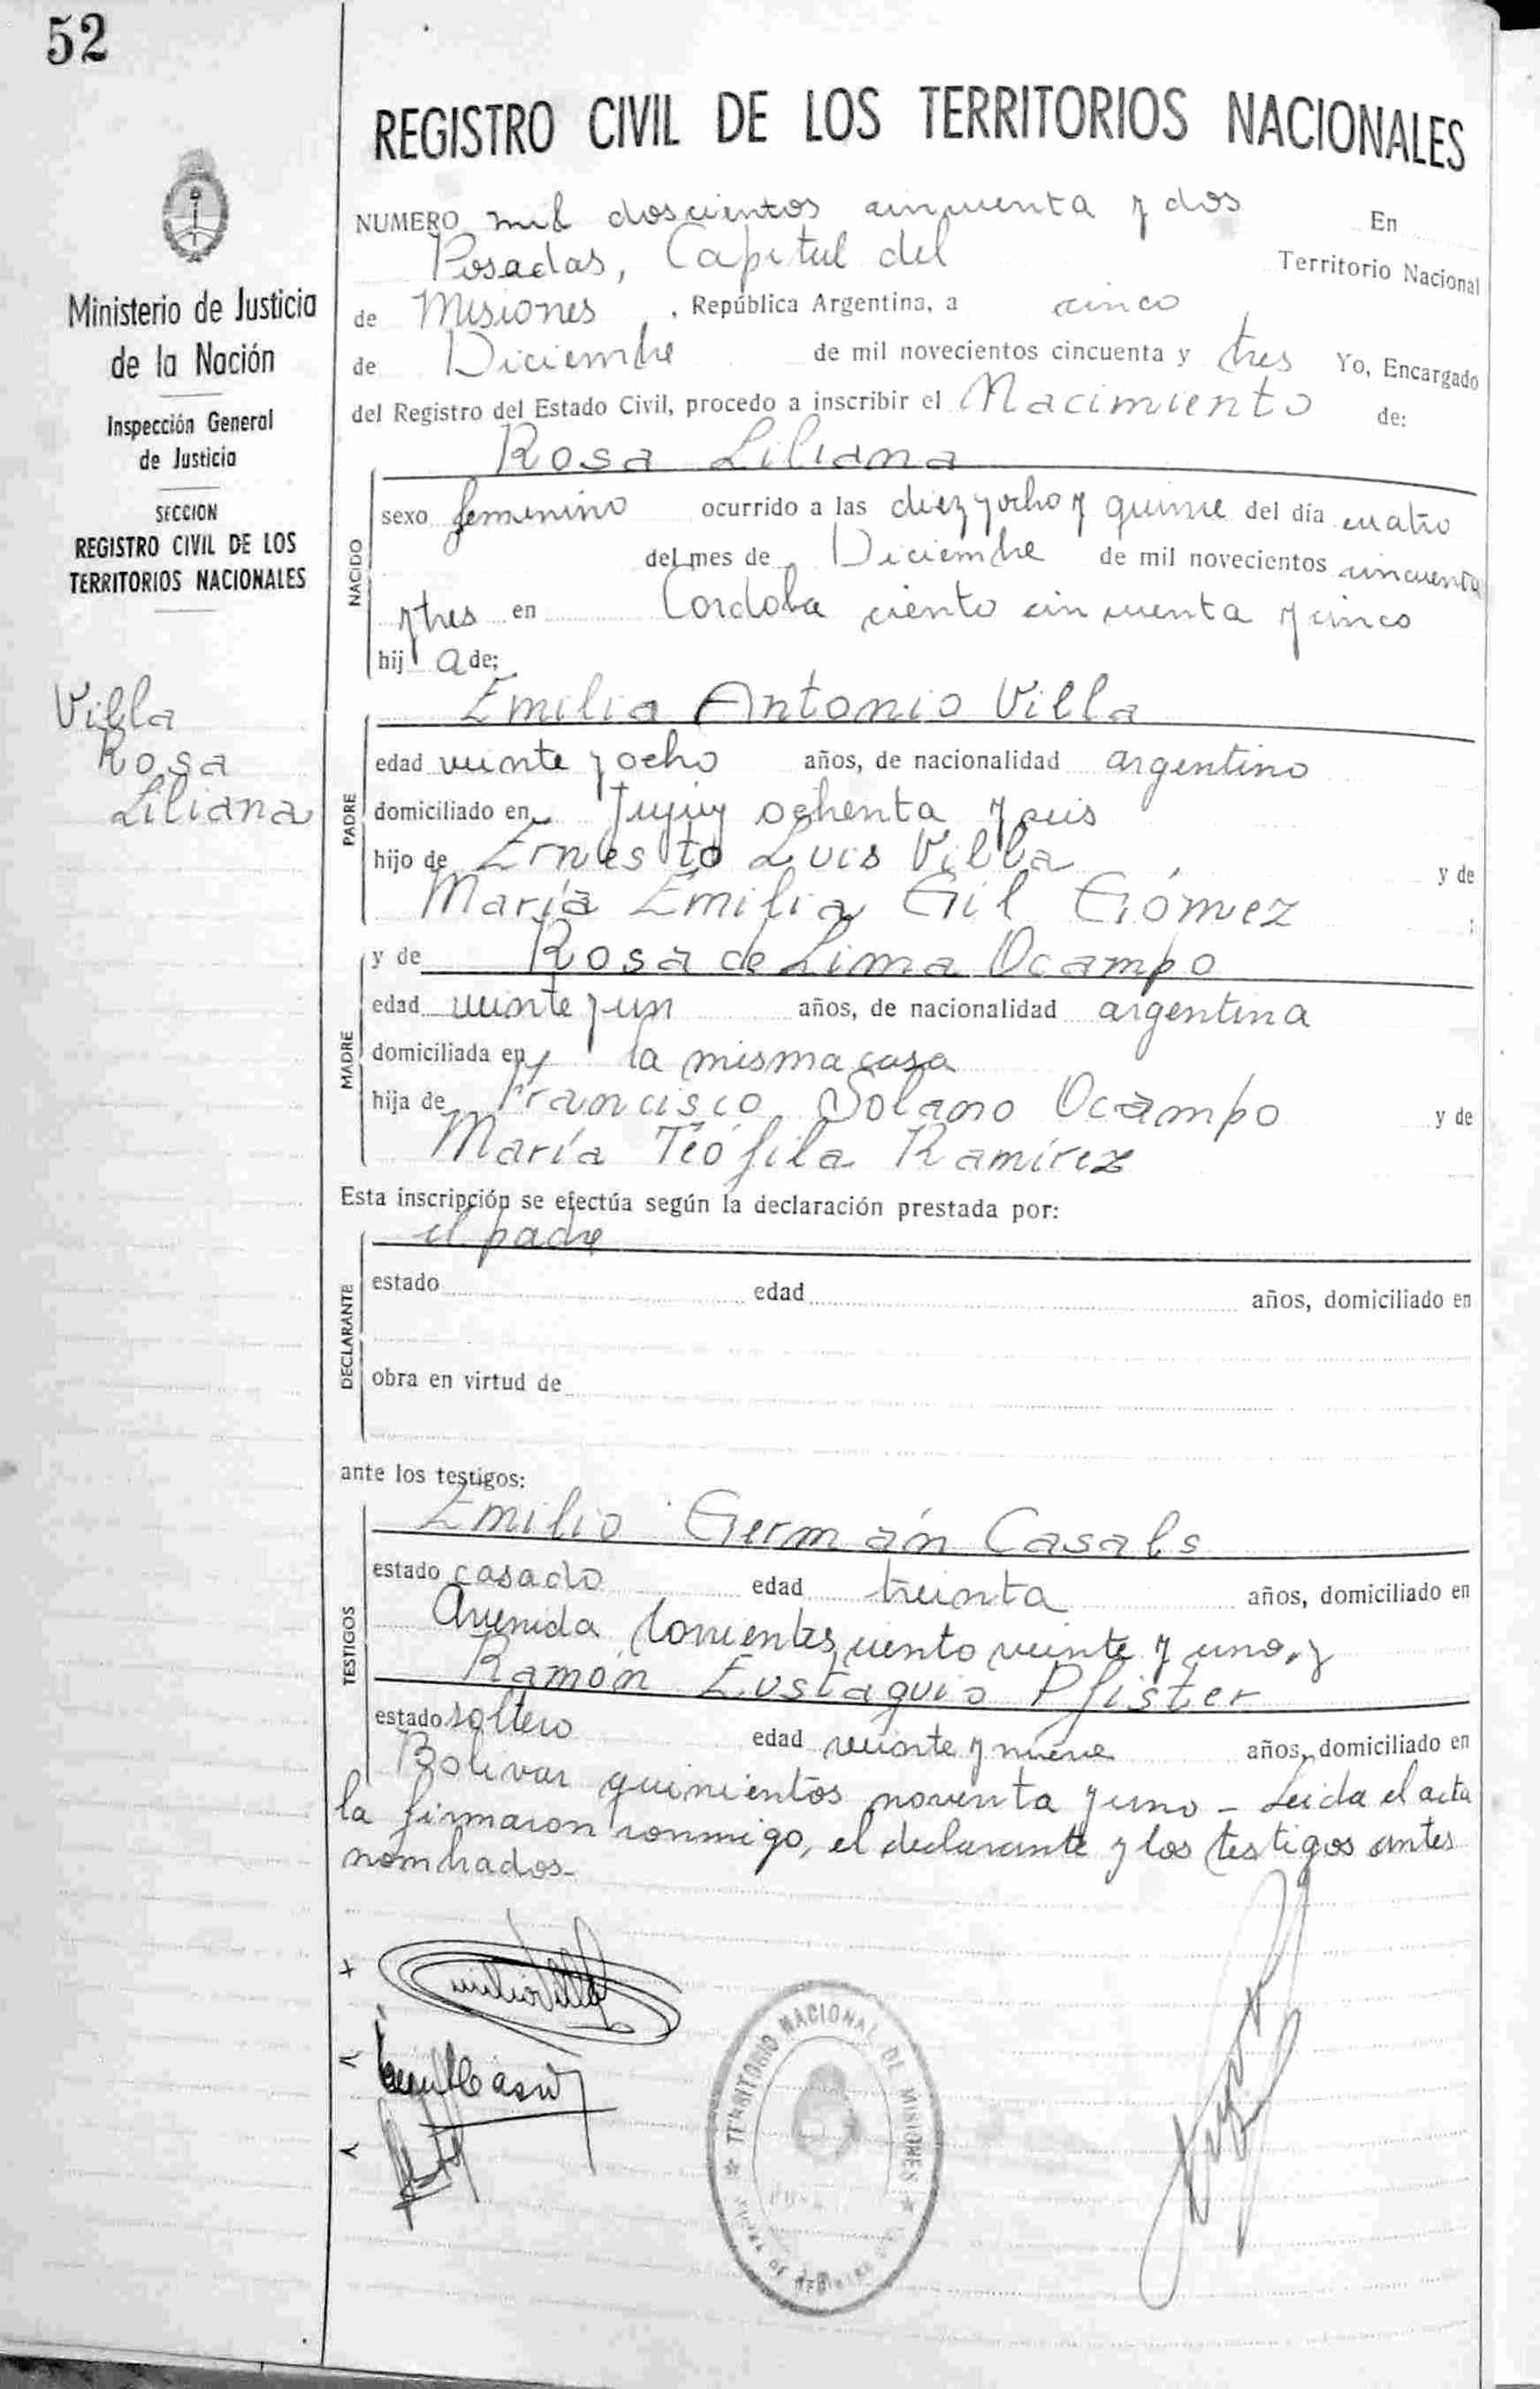 52
Ministerio de Justicia
de la Nación
Inspección General
de Justicia
SECCION
REGISTRO CIVIL DE LOS
TERRITORIOS NACIONALES
Villa
Rosa
Liliana
REGISTRO CIVIL DE LOS TERRITORIOS NACIONALES
NUMERO mil doscientos cincuenta y dos En
Posadas, Capital del Territorio Nacional
de Misiones, República Argentina, a cinco
de Diciembre de mil novecientos cincuenta y tres Yo, Encargado
del Registro del Estado Civil, procedo a inscribir el Nacimiento de:
Rosa Liliana
NACIDO
sexo femenino ocurrido a las diez y ocho y quince del día cuatro
del mes de Diciembre de mil novecientos cincuenta
y tres en Cordoba ciento cincuenta y cinco
hij a de:
Emilio Antonio Villa
PADRE
edad veinte y ocho años, de nacionalidad argentino
domiciliado en Jujuy ochenta y seis
hijo de Ernesto Luis Villa y de
María Emilia Gil Gómez ;
y de Rosa de Lima Ocampo
MADRE
edad veinte y un años, de nacionalidad argentina
domiciliada en la misma casa
hija de Francisco Solano Ocampo y de
María Teófila Ramírez
Esta inscripción se efectúa según la declaración prestada por:
el padre
DECLARANTE
estado edad años, domiciliado en
obra en virtud de
ante los testigos:
Emilio Germán Casals
TESTIGOS
estado casado edad treinta años, domiciliado en
Avenida Corrientes ciento veinte y uno, y
Ramón Eustaquio Pfister
estado soltero edad veinte y nueve años, domiciliado en
Bolivar quinientos noventa y uno - Leida el acta
la firmaron conmigo, el declarante y los testigos antes
nombrados-
Emilio Villa
TERRITORIO NACIONAL DE MISIONES